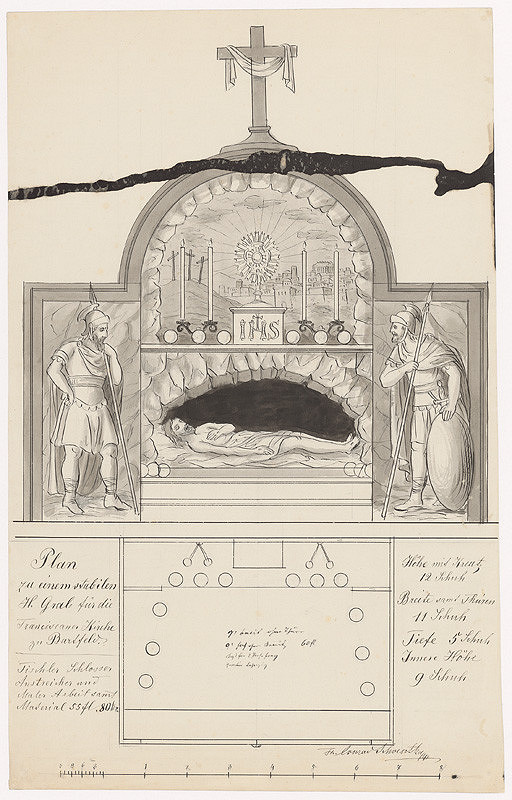 IHS
Plan
zu einem stabilen
H. Grab für die
Franciscaner Kirche
zu Bartfeld.
Tischler Schlosser
Anstreicher und
Maler Arbeit samt
Material 55 fl. 80 kr
Höhe mit Kreutz
12 Schuh
Breite samt Thüren
11 Schuh
Tiefe 5 Schuh
Innere Höhe
9 Schuh
9' breit ohne
Conrad
1 2 3 4 5 6 7 8